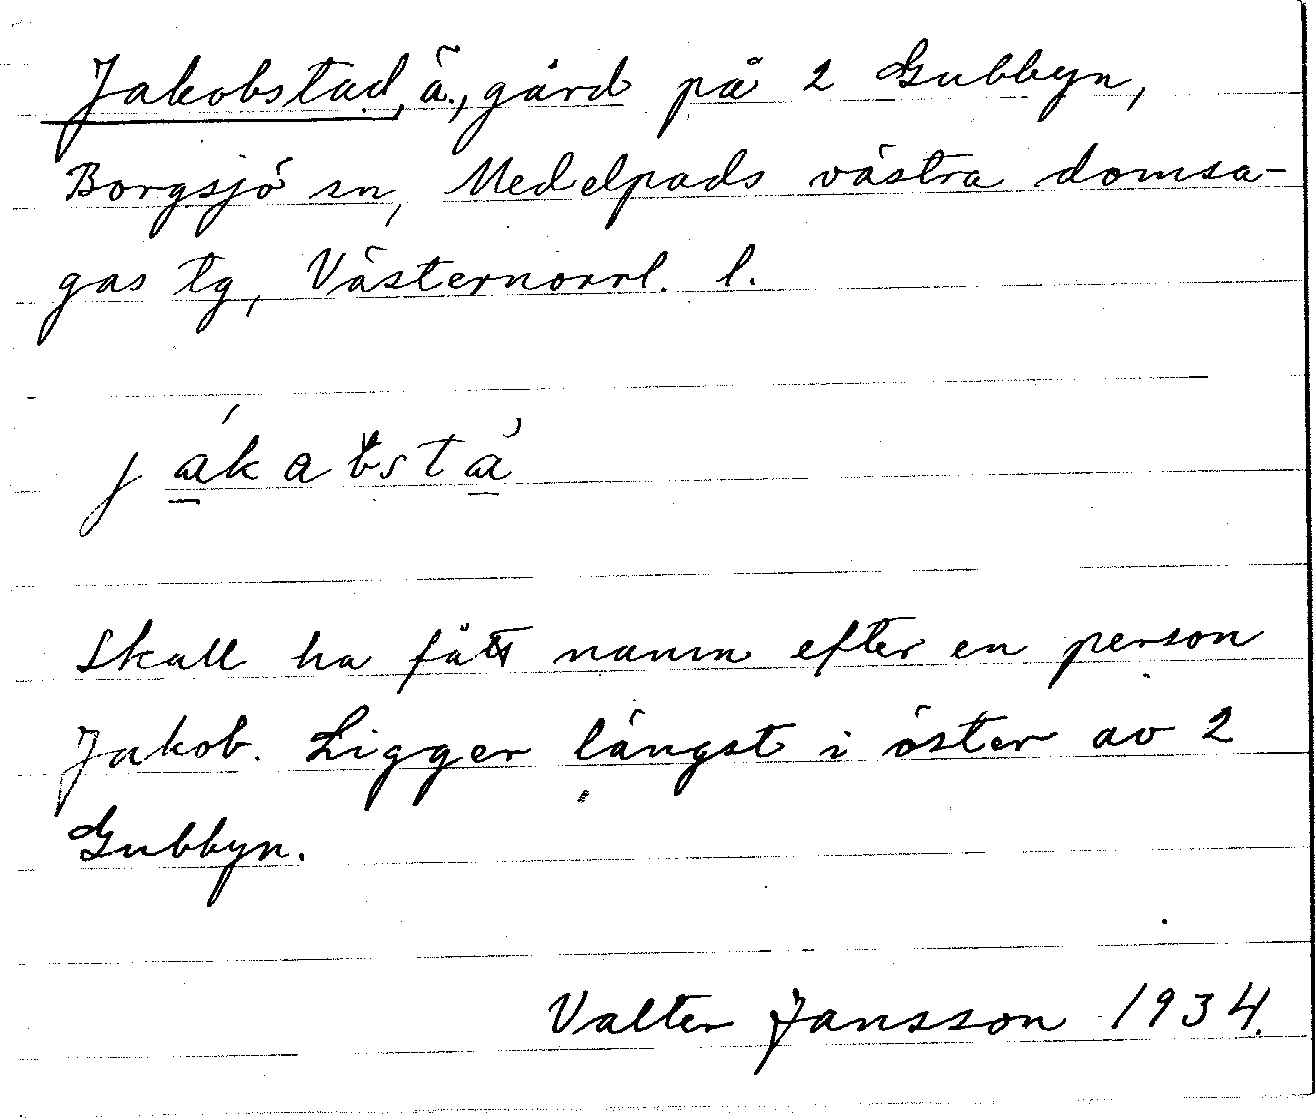 Jakobstad, ä., gård på 2 Gubbyn,
Borgsjö sn, Medelpads västra domsa-
gas tg, Västernorrl. l.
jákabstá
Skall ha fått namn efter en person
Jakob. Ligger längst i öster av 2
Gubbyn.
Valter Jansson 1934.